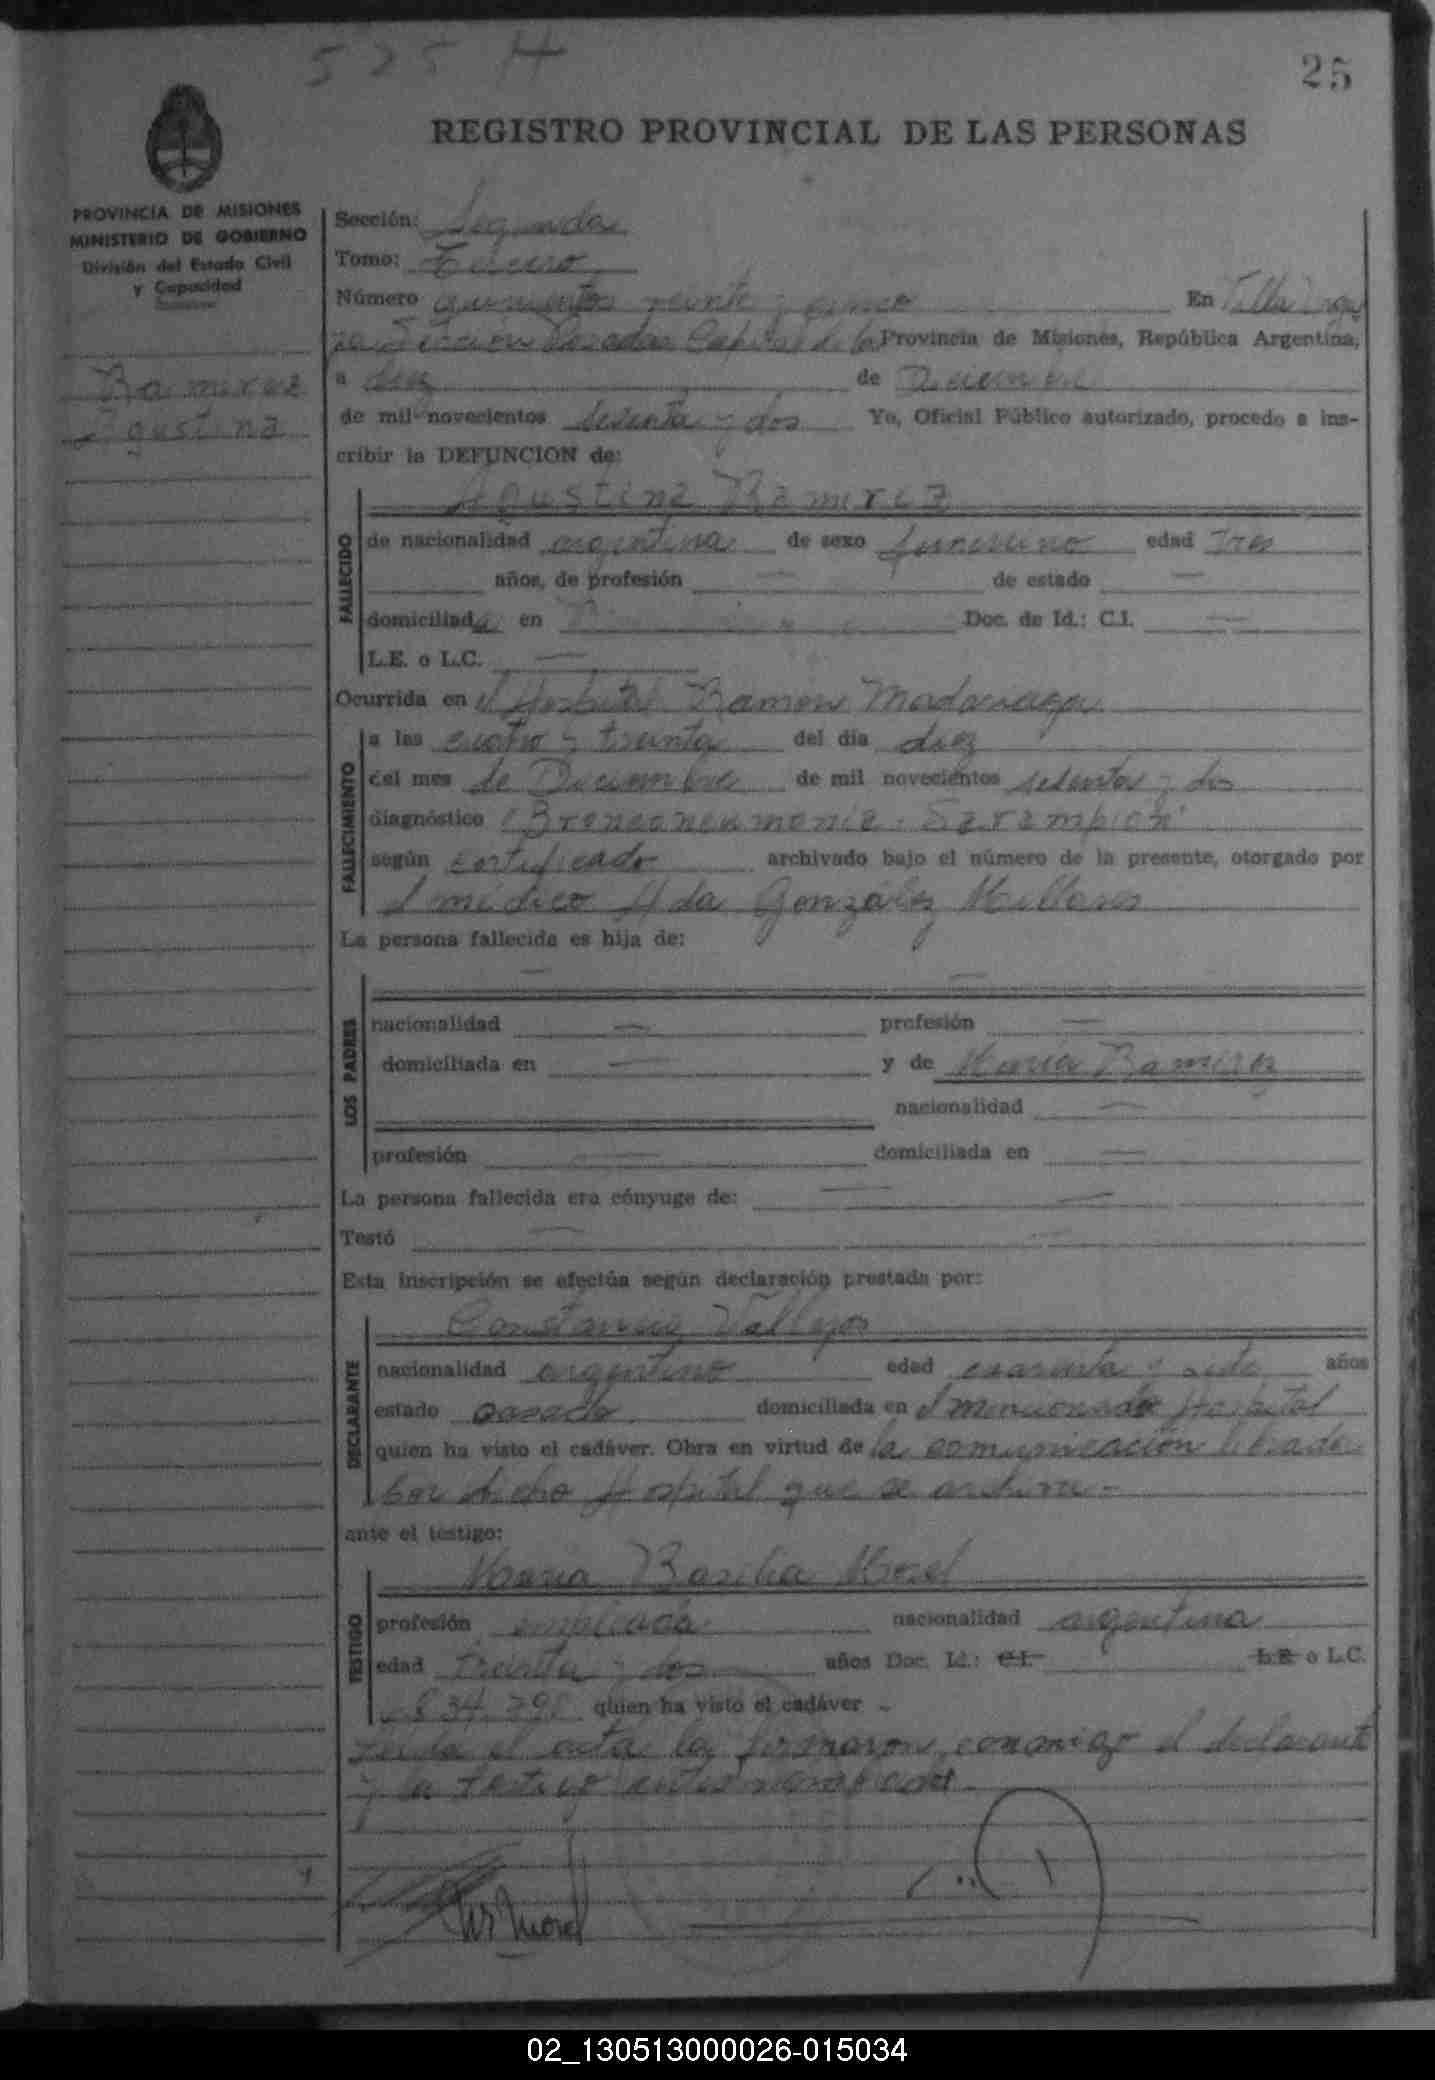 525 H
25
REGISTRO PROVINCIAL DE LAS PERSONAS
PROVINCIA DE MISIONES
MINISTERIO DE GOBIERNO
División del Estado Civil
y Capacidad
Ramirez
Agustina
Sección: Segunda
Tomo: Tercero
Número quinientos veinte y cinco En Villa Urqui
za Sección Posadas Capital de la Provincia de Misiones, República Argentina,
a diez de Diciembre
de mil novecientos sesenta y dos Yo, Oficial Público autorizado, procedo a ins-
cribir la DEFUNCION de:
Agustina Ramirez
FALLECIDO
de nacionalidad argentina de sexo femenino edad Tres
años, de profesión — de estado —
domiciliada en Doc. de Id.: C.I. —
L.E. o L.C. —
Ocurrida en el Hospital Ramón Madariaga
FALLECIMIENTO
a las cuatro y treinta del día diez
del mes de Diciembre de mil novecientos sesenta y dos
diagnóstico Bronconeumonia. Sarampión
según certificado archivado bajo el número de la presente, otorgado por
el médico Hda González
La persona fallecida es hija de:
— —
LOS PADRES
nacionalidad — profesión —
domiciliada en — y de María Ramirez
nacionalidad —
profesión — domiciliada en —
La persona fallecida era cónyuge de: — —
Testó — —
Esta inscripción se efectúa según declaración prestada por:
Constancio Vallejos
DECLARANTE
nacionalidad argentino edad cuarenta y siete años
estado casado domiciliada en el mencionado Hospital
quien ha visto el cadáver. Obra en virtud de la comunicación librada
por dicho Hospital que se archiva-
ante el testigo:
María Basilia Morel
TESTIGO
profesión empleada nacionalidad argentina
edad treinta y dos años Doc. Id.: C.I. L.E. o L.C.
quien ha visto el cadáver -
Leída el acta la firmaron conmigo el declarante
y la testigo antes
Morel
02_130513000026-015034